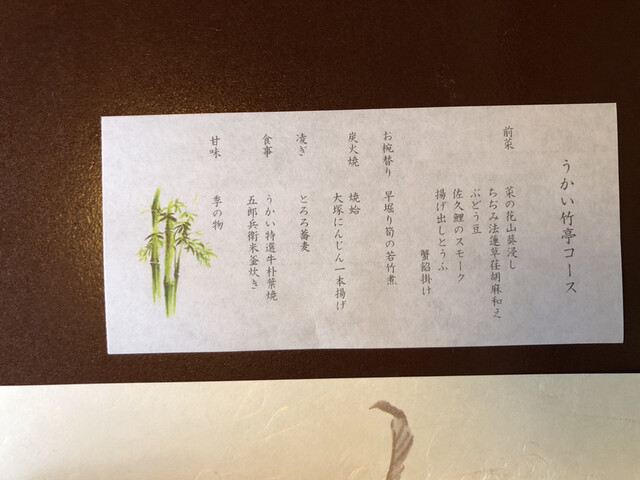 うかい竹亭コース
前菜
菜の花山葵浸し
ちぢみ法蓮草荏胡麻和え
ぶどう豆
佐久鯉のスモーク
揚げ出しとうふ
蟹餡掛け
お椀替り 早堀り筍の若竹煮
炭火焼 焼蛤
大塚にんじん一本揚げ
凌ぎ とろろ蕎麦
食事 うかい特選牛朴葉焼
五郎兵衛米釜炊き
甘味 季の物